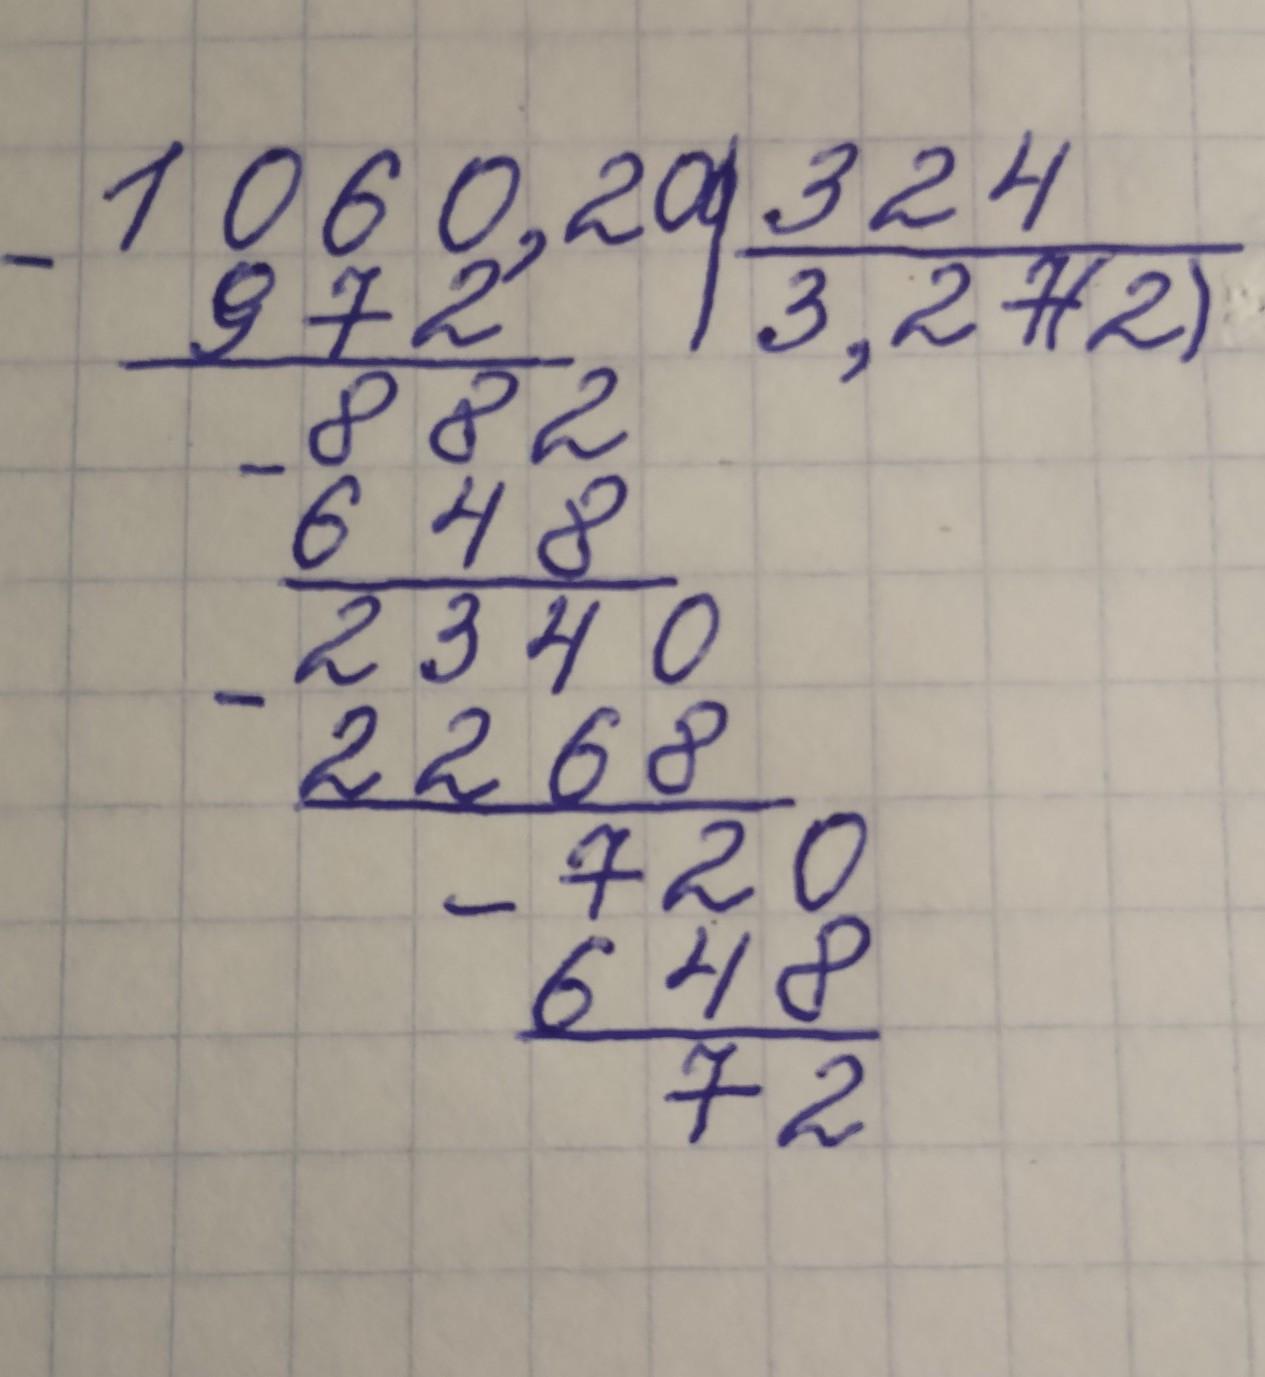 - 1060,20 | 324
972 3,27(2)
- 882
648
- 2340
2268
- 720
648
72